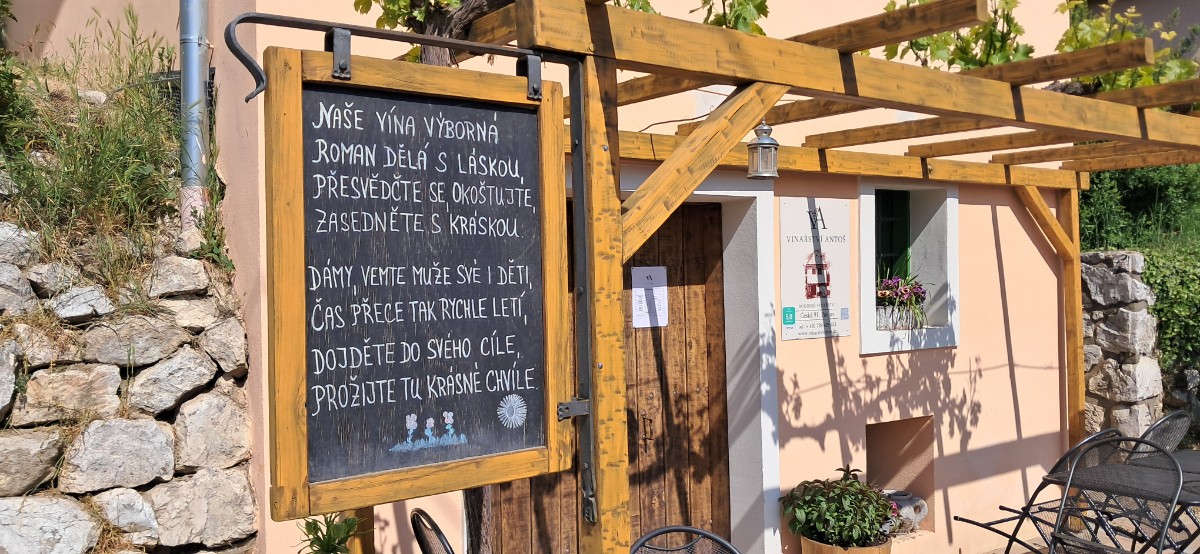 NAŠE VÍNA VÝBORNÁ
ROMAN DĚLÁ S LÁSKOU,
PŘESVĚDČTE SE OKOŠTUJTE,
ZASEDNĚTE S KRÁSKOU.
DÁMY, VEMTE MUŽE SVÉ I DĚTI,
ČAS PŘECE TAK RYCHLE LETÍ,
DOJDĚTE DO SVÉHO CÍLE,
PROŽIJTE TU KRÁSNÉ CHVÍLE.
VINAŘSTVÍ ANTOŠ
5,0